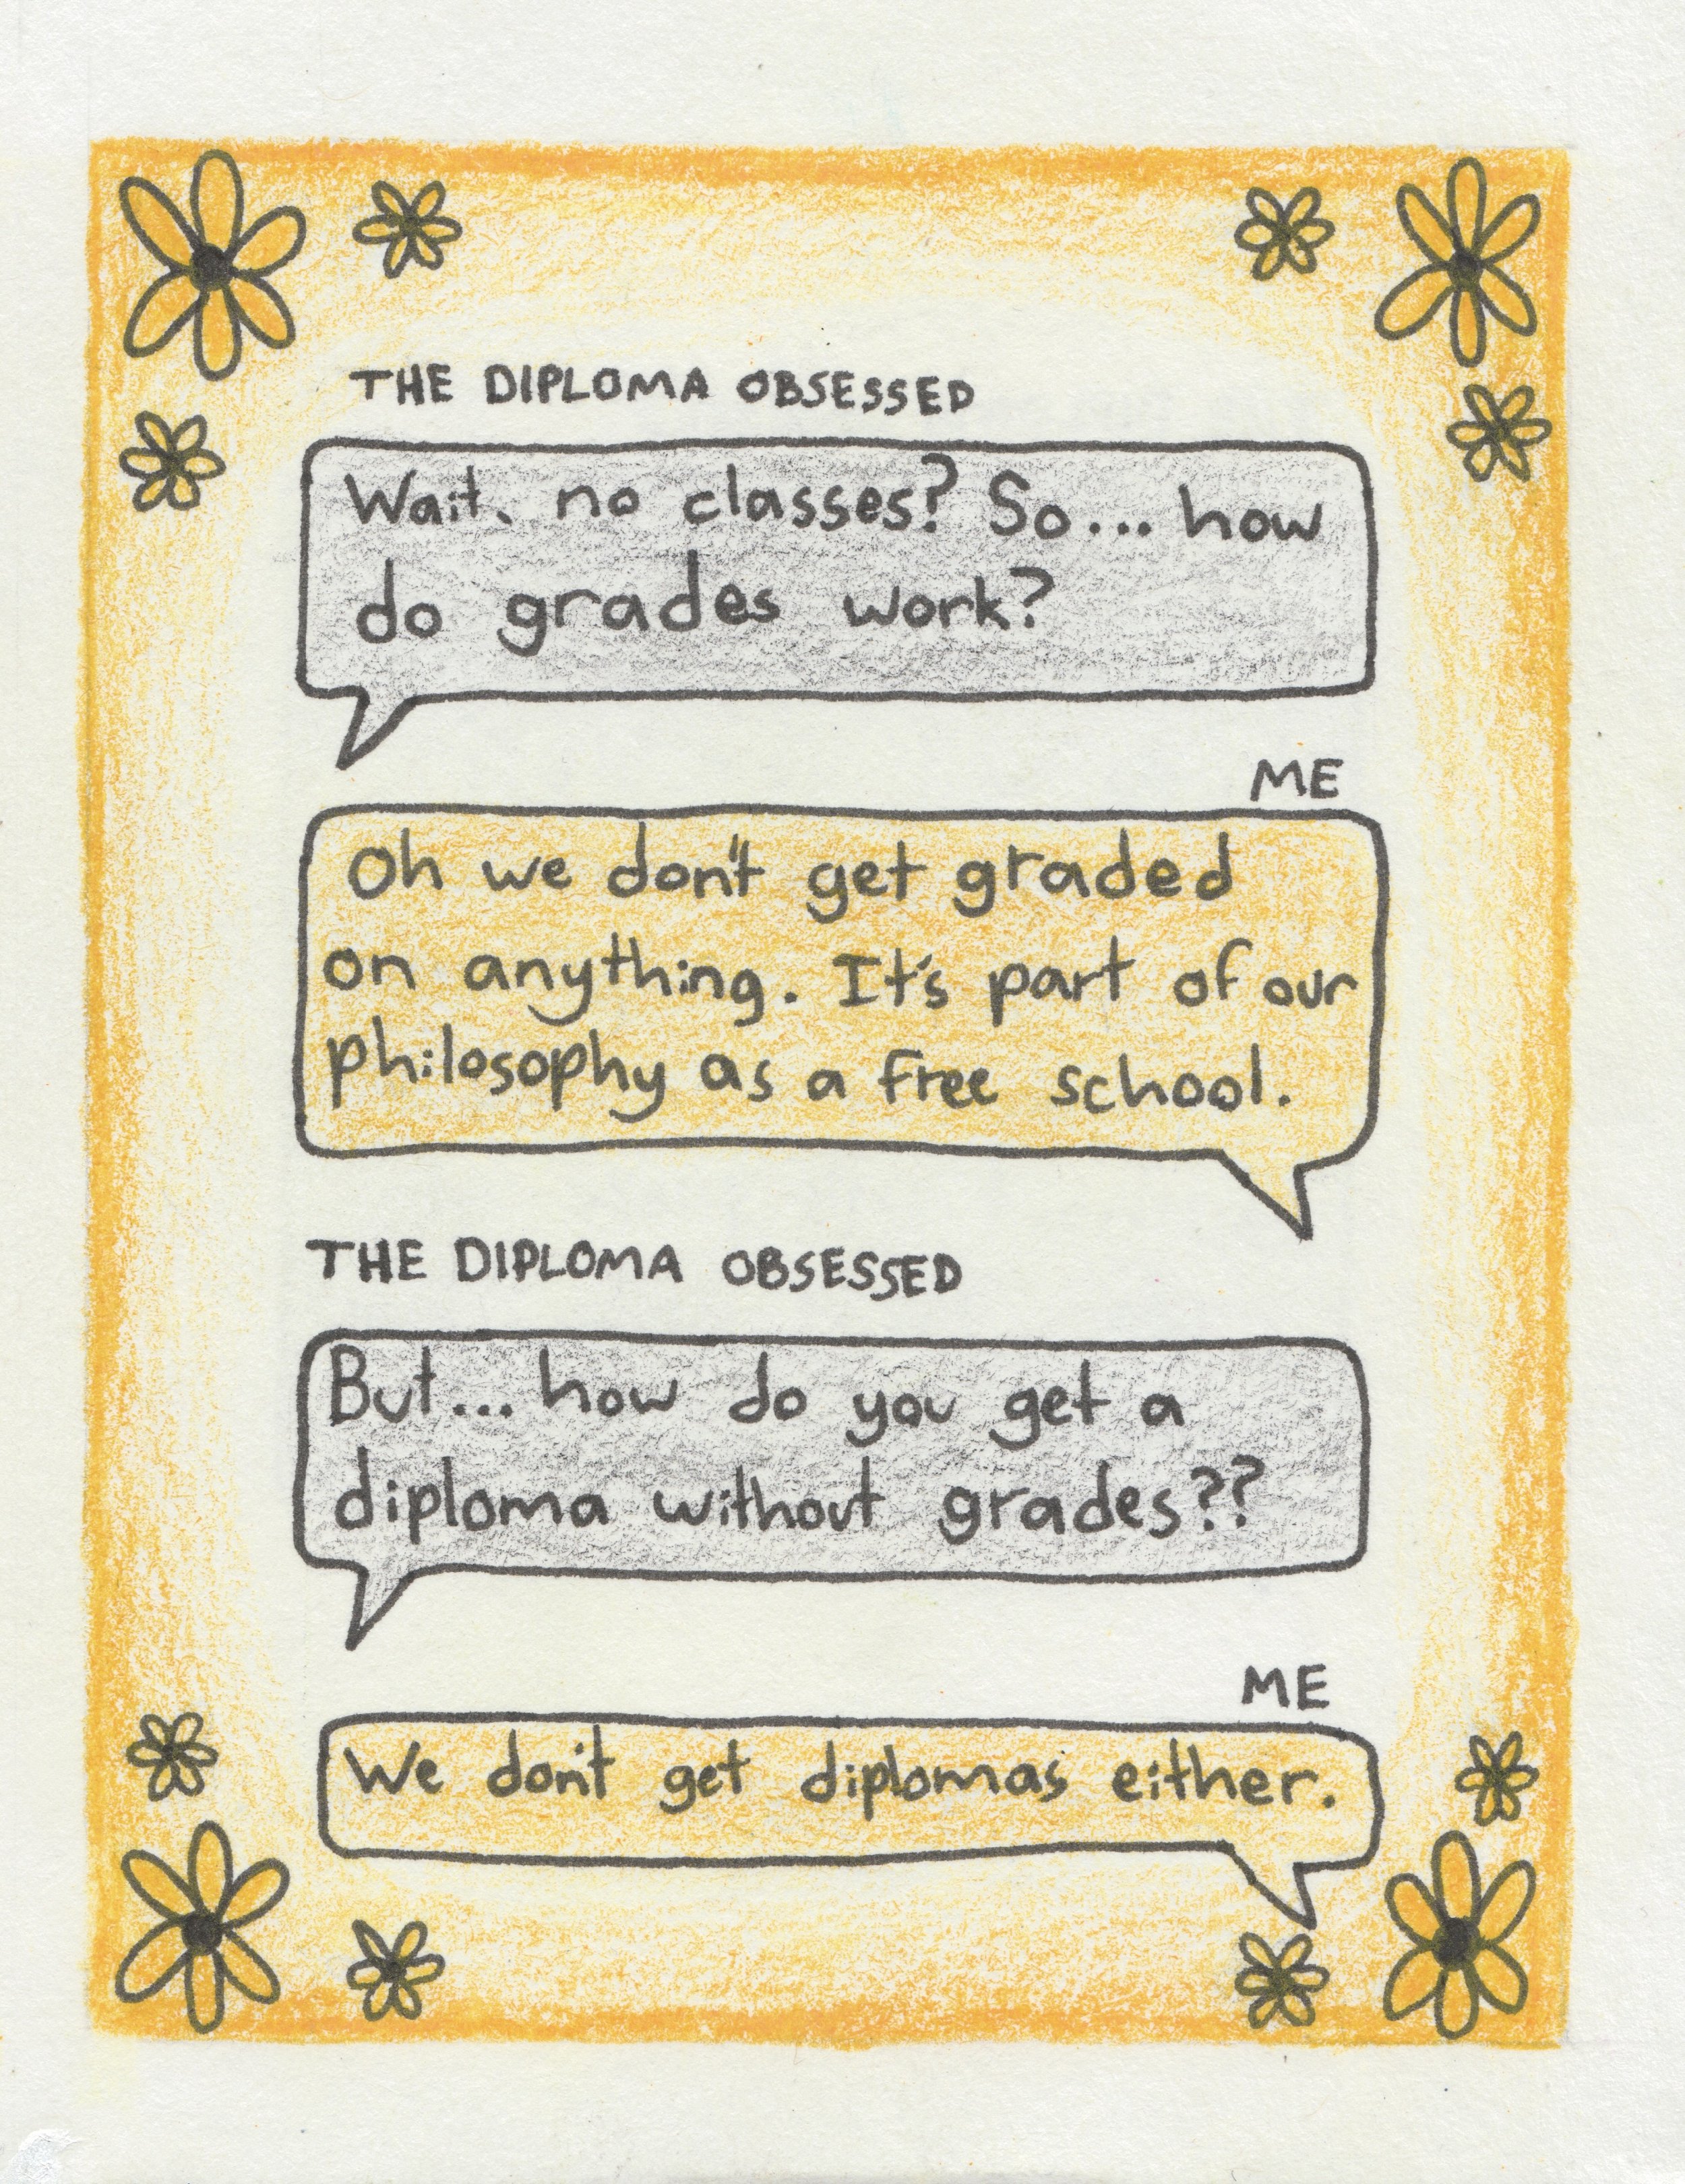 THE DIPLOMA OBSESSED
Wait, no classes? So... how
do grades work?
ME
Oh we don't get graded
on anything. It's part of our
philosophy as a free school.
THE DIPLOMA OBSESSED
But... how do you get a
diploma without grades??
ME
We don't get diplomas either.